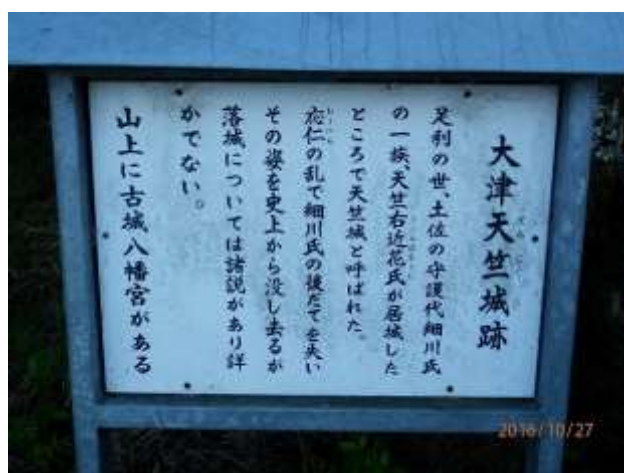 大津天竺城跡
足利の世、土佐の守護代細川氏
の一族、天竺右近花氏が居城した
ところで天竺城と呼ばれた。
応仁の乱で細川氏の後だてを失い
その姿を史上から没し去るが
落城については諸説があり詳
かでない。
山上に古城八幡宮がある
2016/10/27